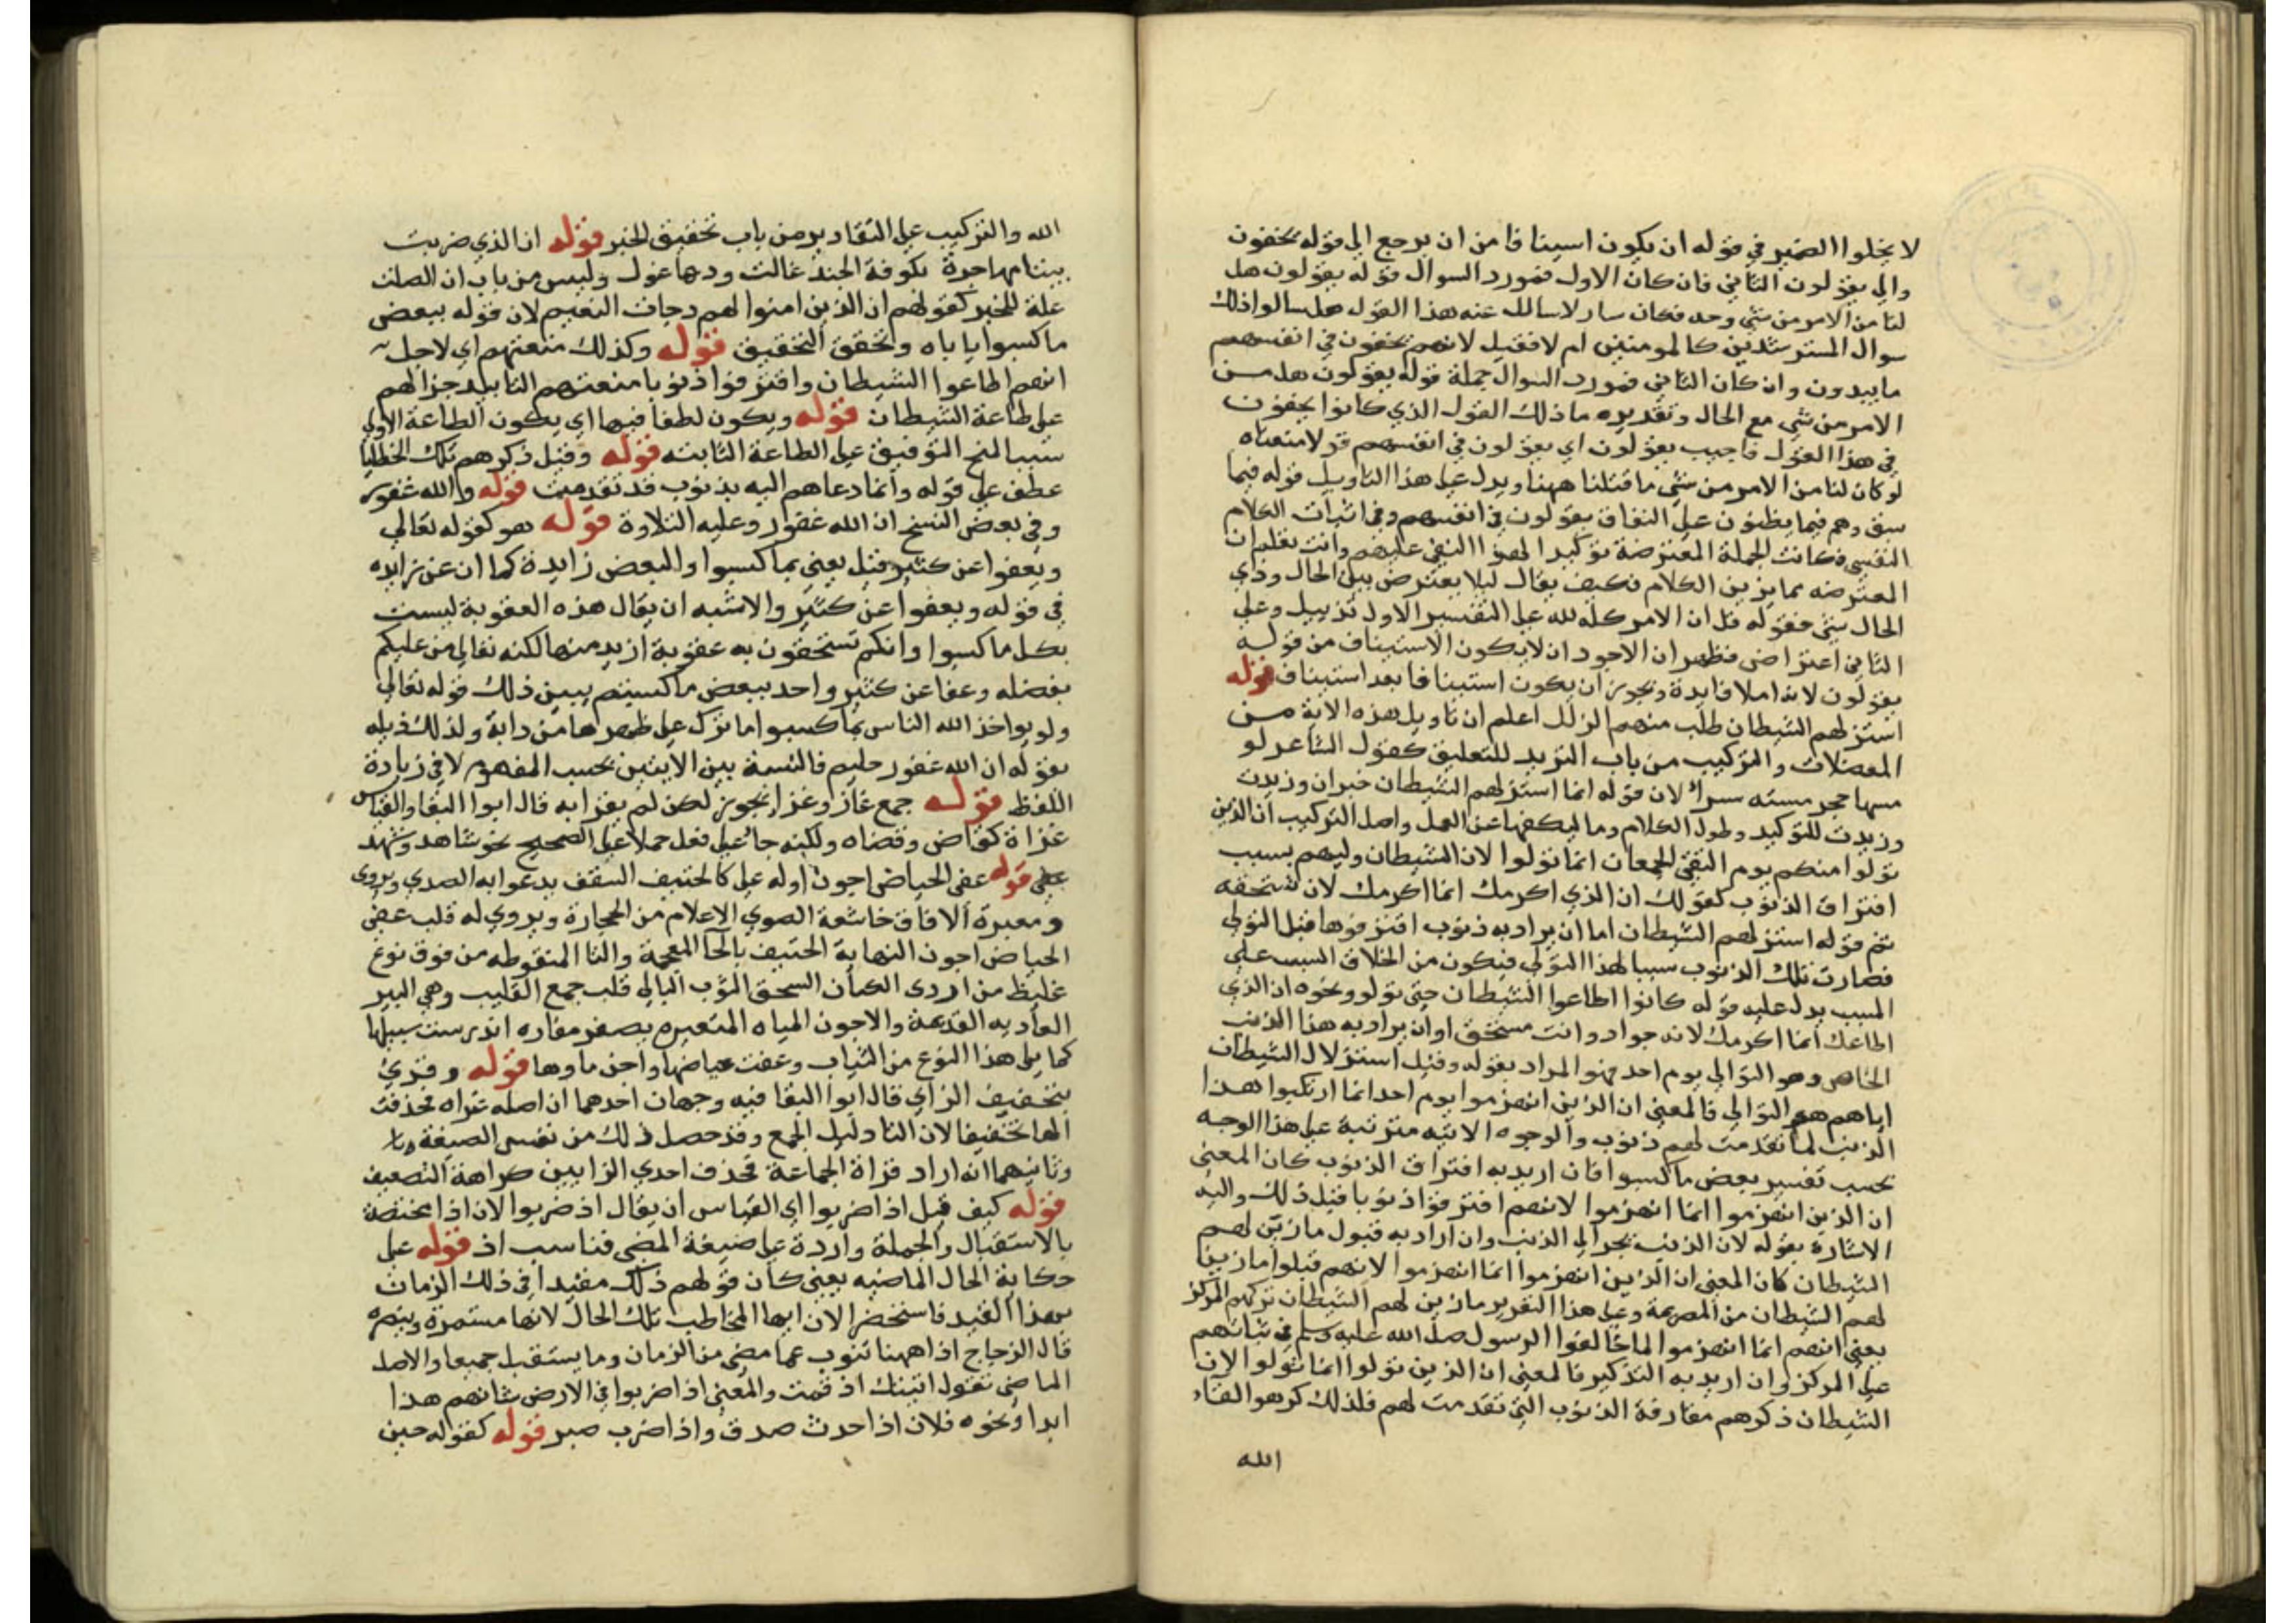 لا يخلوا الضمير في قوله ان يكون اسينافا من ان يرجع الي قوله يخفون
والي يقولون الثاني فان كان الاول فمورد السوال قوله يقولون هل
لنا من الامر من شي وحده فكان سايلا سالك عنه هذا القول هل سالوا ذلك
سوال المسترشدين كالمومنين ام لا فقيل لانهم يخفون في انفسهم
ما يبدون وان كان الثاني فمورد السوال جملة قوله يقولون هل من
الامر من شي مع الحال وتقديره ما ذلك القول الذي كانوا يخفون
في هذا القول فاجيب يقولون اي يقولون في انفسهم قولا معناه
لو كان لنا من الامر من شي ما قتلنا ههنا ويدل علي هذا التاويل قوله فيما
سبق وهم فيما يظنون علي النفاق يقولون في انفسهم وفي اثبات الكلام
النفسي فكانت الجملة المعترضة توكيدا لهذا النفي عليهم وانت تعلم ان
المعترضه مما يزين الكلام فكيف يقال ليلا يعترض بين الحال وذي
الحال شي فقوله قل ان الامر كله لله علي التفسير الاول تذييل وعلي
الثاني اعتراض فظهر ان الاجود ان لا يكون الاستيناف من قوله
يقولون لانه املا فايدة ويجوز ان يكون استينافا بعد استيناف قوله
استزلهم الشيطان طلب منهم الزلل اعلم ان تاويل هذه الاية من
المعضلات والتركيب من باب الترديد للتعليق كقول الشاعر لو
مسها حجر مسته سرا لان قوله انما استزلهم الشيطان خبر ان وزيدت
وزيدت للتوكيد وطول الكلام وما ليكفها عن العمل واصل التركيب ان الذين
تولوا منكم يوم التقي الجمعان انما تولوا لان الشيطان وليهم بسبب
اقتراف الذنوب كقولك ان الذي اكرمك انما اكرمك لان تستحقه
ثم قوله استزلهم الشيطان اما ان يراد به ذنوب اقترفوها قبل التولي
فصارت تلك الذنوب سببا لهذا التولي فيكون من اطلاق السبب علي
المسبب يدل عليه قوله كانوا اطاعوا الشيطان حتي تولوا ونحوه ان الذي
اطاعك انما اكرمك لانه جواد وانت مستحق او ان يراد به هذا الذنب
الخاص وهو التوالي يوم احد فهو المراد بقوله وقيل استزلال الشيطان
اياهم هو التوالي فالمعني ان الذين انهزموا يوم احد انما ارتكبوا هذا
الذنب لما تقدمت لهم ذنوب والوجوه الاتيه مترتبة علي هذا الوجه
بحسب تفسير بعض ما كسبوا فان اريد به اقتراف الذنوب كان المعني
ان الذين انهزموا انما انهزموا لانهم اقترفوا ذنوبا قبل ذلك واليه
الاشارة بقوله لان الذنب يجر الي الذنب وان اراد به قبول ما زين لهم
الشيطان كان المعني ان الذين انهزموا انما انهزموا لانهم قبلوا ما زين
لهم الشيطان من الهزيمة وعلي هذا التقرير ما زين لهم الشيطان تركهم المركز
يعني انهم انما انهزموا لما خالفوا الرسول صلي الله عليه وسلم في ثباتهم
علي المركز وان اريد به التذكير فالمعني ان الذين تولوا انما تولوا لان
الشيطان ذكرهم مفارقة الذنوب التي تقدمت لهم فلذلك كرهوا لقاء
الله
الله والتركيب علي التقادير من باب تحقيق الخبر قوله ان الذي ضربت
بيتا مهاجرة بكوفة الجند غالت ودها غول وليس من باب ان الصلت
علة للخبر كقولهم ان الذين امنوا لهم درجات النعيم لان قوله ببعض
ما كسبوا ياباه وتحقق التحقيق قوله وكذلك منعتهم اي لاجل
انهم اطاعوا الشيطان واقترفوا ذنوبا منعتهم التاييد جزالهم
علي طاعة الشيطان قوله ويكون لطفا فيها اي يكون الطاعة الاولي
سببا لمنح التوفيق علي الطاعة الثانيه قوله وقيل ذكرهم تلك الخطايا
عطف علي قوله وانما دعاهم اليه بذنوب قد تقدمت قوله والله غفور
وفي بعض النسخ ان الله غفور وعليه التلاوة قوله هو كقوله تعالي
ويعفوا عن كثير قيل يعني بما كسبوا والبعض زايدة كما ان عن زايده
في قوله ويعفوا عن كثير والاشبه ان يقال هذه العقوبة ليست
بكل ما كسبوا وانكم تستحقون به عقوبة ازيد منها لكنه تعالي من عليكم
بفضله وعفا عن كثير واحد ببعض ما كسبتم يبين ذلك قوله تعالي
ولو يواخذ الله الناس بما كسبوا ما ترك علي ظهرها من دابة ولذلك ذيله
بقوله ان الله غفور حليم فالنسبة بين الايتين بحسب المفهوم لا في زيادة
اللفظ قوله جمع غاز وغزا يجوز لكن لم يقرا به قال ابوا البقا والقياس
غزاة كقاض وقضاه ولكنه جا علي فعل حملا علي الصحيح نحو شاهد وشهد
عفي قوله عفي الحياض اجون اوله علي كالخنيف السقف يدعوا به الصدي ويروي
ومغبرة الافاق خاشعة الصوي الاعلام من الحجارة ويروي له قلب عفي
الحياض اجون النهاية الخنيف بالخا المعجمة والنا المنقوطه من فوق نوع
غليظ من اردي الكتان السحق الثوب البالي قلب جمع القليب وهي البير
العاديه القديمة والاجون المياه المتغيره يصف مفاره اندرست سبيلها
كما يلي هذا النوع من الثياب وعفت حياضها واجن ماوها قوله وقري
بتخفيف الزاي قال ابوا البقا فيه وجهان احدهما ان اصله غزاه فحذفت
الها تخفيفا لان التا دليل الجمع وقد حصل ذلك من نفس الصيغة
وثانيهما انه اراد قراة الجماعة فحذف احدي الزايين كراهة التضعيف
قوله كيف قيل اذا ضربوا اي القياس ان يقال اذ ضربوا لان اذا مختصة
بالاستقبال والجملة واردة علي صيغة المضي فناسب اذ قوله علي
حكاية الحال الماضيه يعني كان قولهم ذلك مقيدا في ذلك الزمان
بهذا القيد فاستحضر الان ايها المخاطب تلك الحال لانها مستمرة
قال الزجاج اذا ههنا تنوب عما مضي من الزمان وما يستقبل جميعا والاصل
الماضي تقول اتيتك اذ قمت والمعني اذا ضربوا في الارض شانهم هذا
ابدا ونحوه فلان اذا حدث صدق واذا ضرب صبر قوله كقوله حين